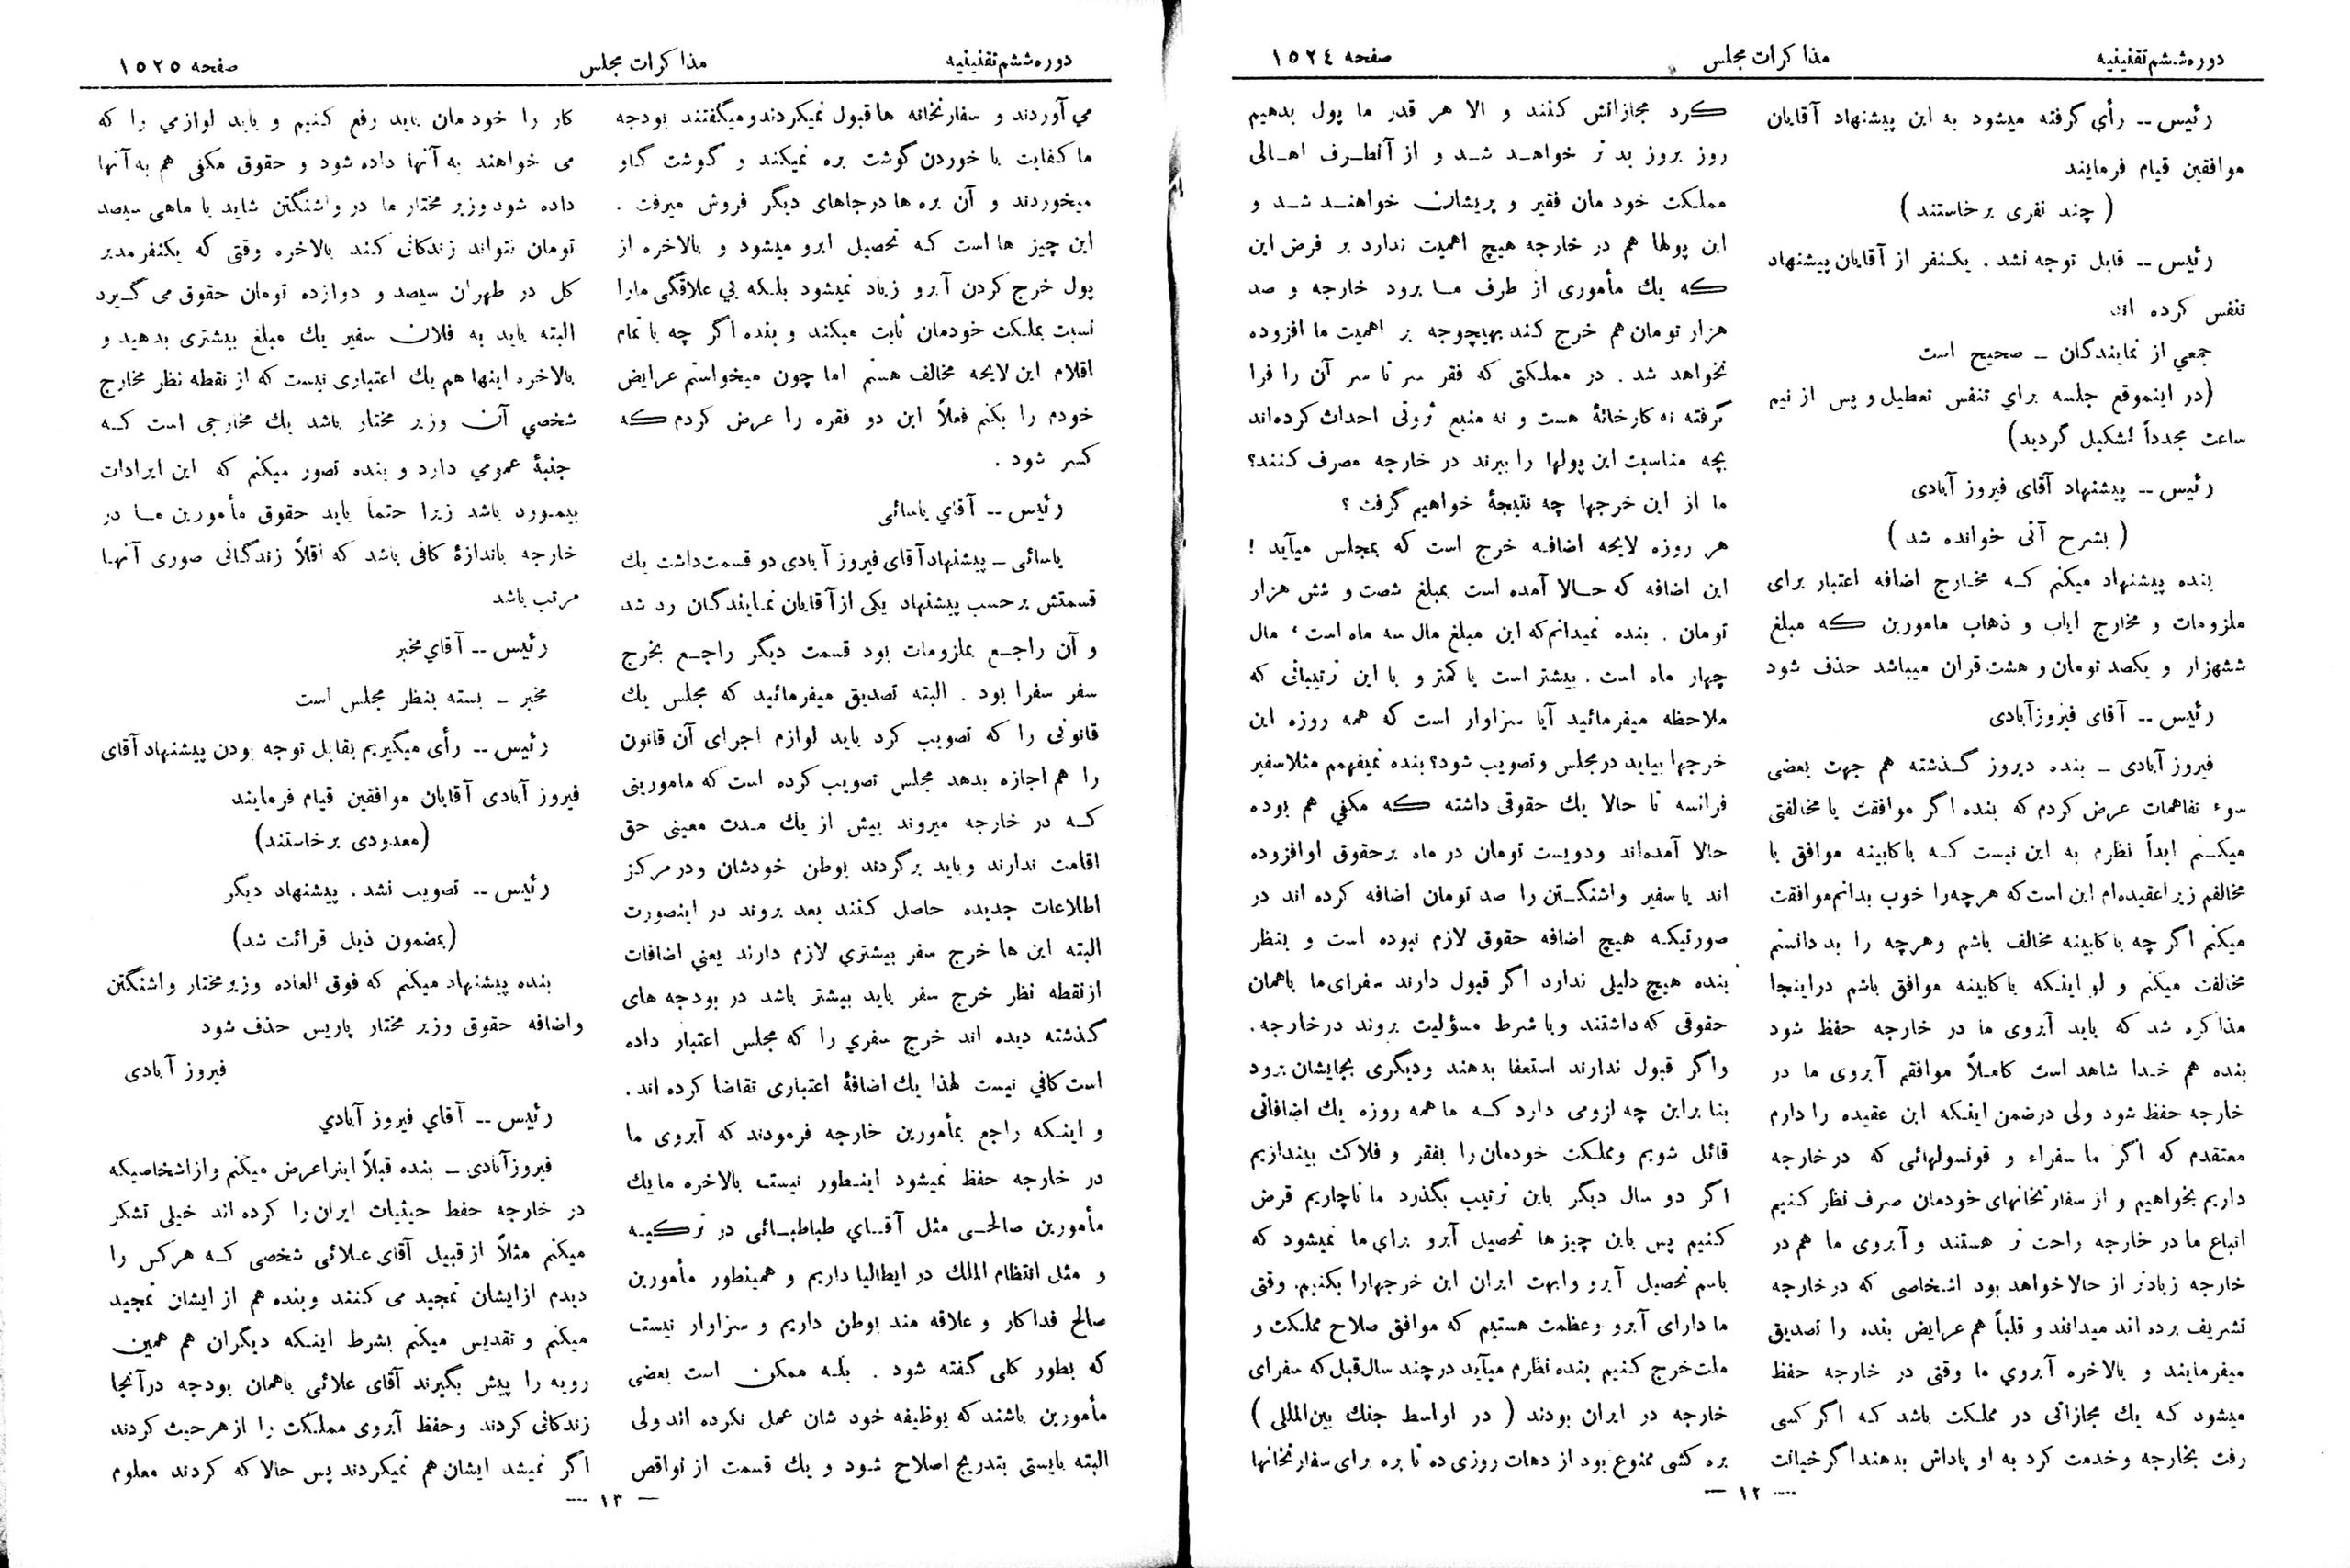 دوره ششم تقنینیه مذاکرات مجلس صفحه ١٥٢٤
رئیس -- رأی گرفته میشود به این پیشنهاد آقایان
موافقین قیام فرمایند
(چند نفری برخاستند)
رئیس -- قابل توجه نشد . یکنفر از آقایان پیشنهاد
تنفس کرده اند
جمعی از نمایندگان _ صحیح است
(در اینموقع جلسه برای تنفس تعطیل و پس از نیم
ساعت مجدداً تشکیل گردید)
رئیس -- پیشنهاد آقای فیروز آبادی
(بشرح آتی خوانده شد)
بنده پیشنهاد میکنم که مخارج اضافه اعتبار برای
ملزومات و مخارج ایاب و ذهاب مامورین که مبلغ
ششهزار و یکصد تومان و هشت قران میباشد حذف شود
رئیس -- آقای فیروزآبادی
فیروز آبادی _ بنده دیروز گذشته هم جهت بعضی
سوء تفاهمات عرض کردم که بنده اگر موافقت یا مخالفتی
میکنم ابداً نظرم به این نیست که با کابینه موافق یا
مخالفم زیرا عقیده‌ام این است که هر چه را خوب بدانم موافقت
میکنم اگر چه با کابینه مخالف باشم وهرچه را بد دانستم
مخالفت میکنم و لو اینکه با کابینه موافق باشم دراینجا
مذاکره شد که باید آبروی ما در خارجه حفظ شود
بنده هم خدا شاهد است کاملاً موافقم آبروی ما در
خارجه حفظ شود ولی درضمن اینکه این عقیده را دارم
معتقدم که اگر ما سفراء و قونسولهائی که در خارجه
داریم بخواهیم و از سفارتخانهای خودمان صرف نظر کنیم
اتباع ما در خارجه راحت تر هستند و آبروی ما هم در
خارجه زیادتر از حالا خواهد بود اشخاصی که در خارجه
تشریف برده اند میدانند و قلباً هم عرایض بنده را تصدیق
میفرمایند و بالاخره آبروي ما وقتی در خارجه حفظ
میشود که یك مجازاتی در مملکت باشد که اگر کسی
رفت بخارجه وخدمت کرد به او پاداش بدهند اگر خیانت
کرد مجازاتش کنند و الا هر قدر ما پول بدهیم
روز بروز بد تر خواهد شد و از آنطرف اهالی
مملکت خودمان فقیر و پریشان خواهند شد و
این پولها هم در خارجه هیچ اهمیت ندارد بر فرض این
که یك مأموری از طرف ما برود خارجه و صد
هزار تومان هم خرج کند بهیچوجه بر اهمیت ما افزوده
نخواهد شد . در مملکتی که فقر سر تا سر آن را فرا
گرفته نه کارخانهٔ هست و نه منبع ثروتی احداث کرده‌اند
بچه مناسبت این پولها را ببرند در خارجه مصرف کنند؟
ما از این خرجها چه نتیجهٔ خواهیم گرفت ؟
هر روزه لایحه اضافه خرج است که بمجلس میآید !
این اضافه که حالا آمده است بمبلغ شصت و شش هزار
تومان . بنده نمیدانم که این مبلغ مال سه ماه است، مال
چهار ماه است . بیشتر است یا کمتر و با این ترتیباتی که
ملاحظه میفرمائید آیا سزاوار است که همه روزه این
خرجها بیاید در مجلس و تصویب شود؟ بنده نمیفهمم مثلا سفیر
فرانسه تا حالا یك حقوقی داشته که مکفی هم بوده
حالا آمده‌اند ودویست تومان در ماه بر حقوق اوافزوده
اند یا سفیر واشنگتن را صد تومان اضافه کرده اند در
صورتیکه هیچ اضافه حقوق لازم نبوده است و بنظر
بنده هیچ دلیلی ندارد اگر قبول دارند سفرای ما باهمان
حقوقی که داشتند وبا شرط مسؤلیت بروند در خارجه .
واگر قبول ندارند استعفا بدهند ودیگری بجایشان برود
بنا براین چه لزومی دارد که ما همه روزه یك اضافاتی
قائل شویم ومملکت خودمان را بفقر و فلاکت بیندازیم
اگر دو سال دیگر باین ترتیب بگذرد ما ناچاریم قرض
کنیم پس باین چیزها تحصیل آبرو برای ما نمیشود که
باسم تحصیل آبرو وابهت ایران این خرجهارا بکنیم. وقتی
ما دارای آبرو وعظمت هستیم که موافق صلاح مملکت و
ملت خرج کنیم بنده نظرم میآید در چند سال قبل که سفرای
خارجه در ایران بودند ( در اواسط جنك بین‌المللی )
بره کشی ممنوع بود از دهات روزی ده تا بره برای سفارتخانها
-- ١٢ --
دوره ششم تقنینیه مذاکرات مجلس صفحه ١٥٢٥
می آوردند و سفارتخانه ها قبول نمیکردند ومیگفتند بودجه
ما کفایت با خوردن گوشت بره نمیکند و گوشت گاو
میخوردند و آن بره ها در جاهای دیگر فروش میرفت .
این چیز ها است که تحصیل ابرو میشود و بالاخره از
پول خرج کردن آبرو زیاد نمیشود بلکه بی علاقگی مارا
نسبت بملکت خودمان ثابت میکند و بنده اگر چه با تمام
اقلام این لایحه مخالف هستم اما چون میخواستم عرایض
خودم را بکنم فعلاً این دو فقره را عرض کردم که
کسر شود .
رئیس -- آقای یاسائی
یاسائی _ پیشنهاد آقای فیروز آبادی دو قسمت داشت یك
قسمتش بر حسب پیشنهاد یکی از آقایان نمایندگان رد شد
و آن راجع بملزومات بود قسمت دیگر راجع بخرج
سفر سفرا بود . البته تصدیق میفرمائید که مجلس یك
قانونی را که تصویب کرد باید لوازم اجرای آن قانون
را هم اجازه بدهد مجلس تصویب کرده است که مامورینی
که در خارجه میروند بیش از یك مدت معینی حق
اقامت ندارند وباید برگردند بوطن خودشان ودر مرکز
اطلاعات جدیده حاصل کنند بعد بروند در اینصورت
البته این ها خرج سفر بیشتري لازم دارند یعنی اضافات
ازنقطه نظر خرج سفر باید بیشتر باشد در بودجه های
گذشته دیده اند خرج سفري را که مجلس اعتبار داده
است کافی نیست لهذا یك اضافهٔ اعتباری تقاضا کرده اند .
و اینکه راجع بمأمورین خارجه فرمودند که آبروی ما
در خارجه حفظ نمیشود اینطور نیست بالاخره ما یك
مأمورین صالحی مثل آقای طباطبائی در ترکیه
و مثل انتظام الملك در ایطالیا داریم و همینطور مأمورین
صالح فداکار و علاقه مند بوطن داریم و سزاوار نیست
که بطور کلی گفته شود . بله ممکن است بعضی
مأمورین باشند که بوظیفه خود شان عمل نکرده اند ولی
البته بایستی بتدریج اصلاح شود و یك قسمت از نواقص
کار را خودمان باید رفع کنیم و باید لوازمی را که
می خواهند به آنها داده شود و حقوق مکفی هم به آنها
داده شود وزیر مختار ما در واشنگتن شاید با ماهی سیصد
تومان نتواند زندگانی کند بالاخره وقتی که یکنفر مدیر
کل در طهران سیصد و دوازده تومان حقوق می گیرد
البته باید به فلان سفیر یك مبلغ بیشتری بدهید و
بالاخره اینها هم یك اعتباری نیست که از نقطه نظر مخارج
شخصی آن وزیر مختار باشد یك مخارجی است که
جنبهٔ عمومی دارد و بنده تصور میکنم که این ایرادات
بیمورد باشد زیرا حتماً باید حقوق مأمورین ما در
خارجه باندازهٔ کافی باشد که اقلاً زندگانی صوری آنها
مرتب باشد
رئیس -- آقای مخبر
مخبر _ بسته بنظر مجلس است
رئیس -- رأی میگیریم بقابل توجه بودن پیشنهاد آقای
فیروز آبادی آقایان موافقین قیام فرمایند
(معدودی برخاستند)
رئیس -- تصویب نشد . پیشنهاد دیگر
(بمضمون ذیل قرائت شد)
بنده پیشنهاد میکنم که فوق العاده وزیر مختار واشنگتن
واضافه حقوق وزیر مختار پاریس حذف شود
فیروز آبادی
رئیس -- آقای فیروز آبادي
فیروز آبادی _ بنده قبلاً اینرا عرض میکنم وازاشخاصیکه
در خارجه حفظ حیثیات ایران را کرده اند خیلی تشکر
میکنم مثلاً از قبیل آقای علائی شخصی که هرکس را
دیدم ازایشان تمجید می کنند وبنده هم از ایشان تمجید
میکنم و تقدیس میکنم بشرط اینکه دیگران هم همین
رویه را پیش بگیرند آقای علائی باهمان بودجه درآنجا
زندگانی کردند وحفظ آبروی مملکت را از هرحیث کردند
اگر نمیشد ایشان هم نمیکردند پس حالا که کردند معلوم
-- ١٣ --